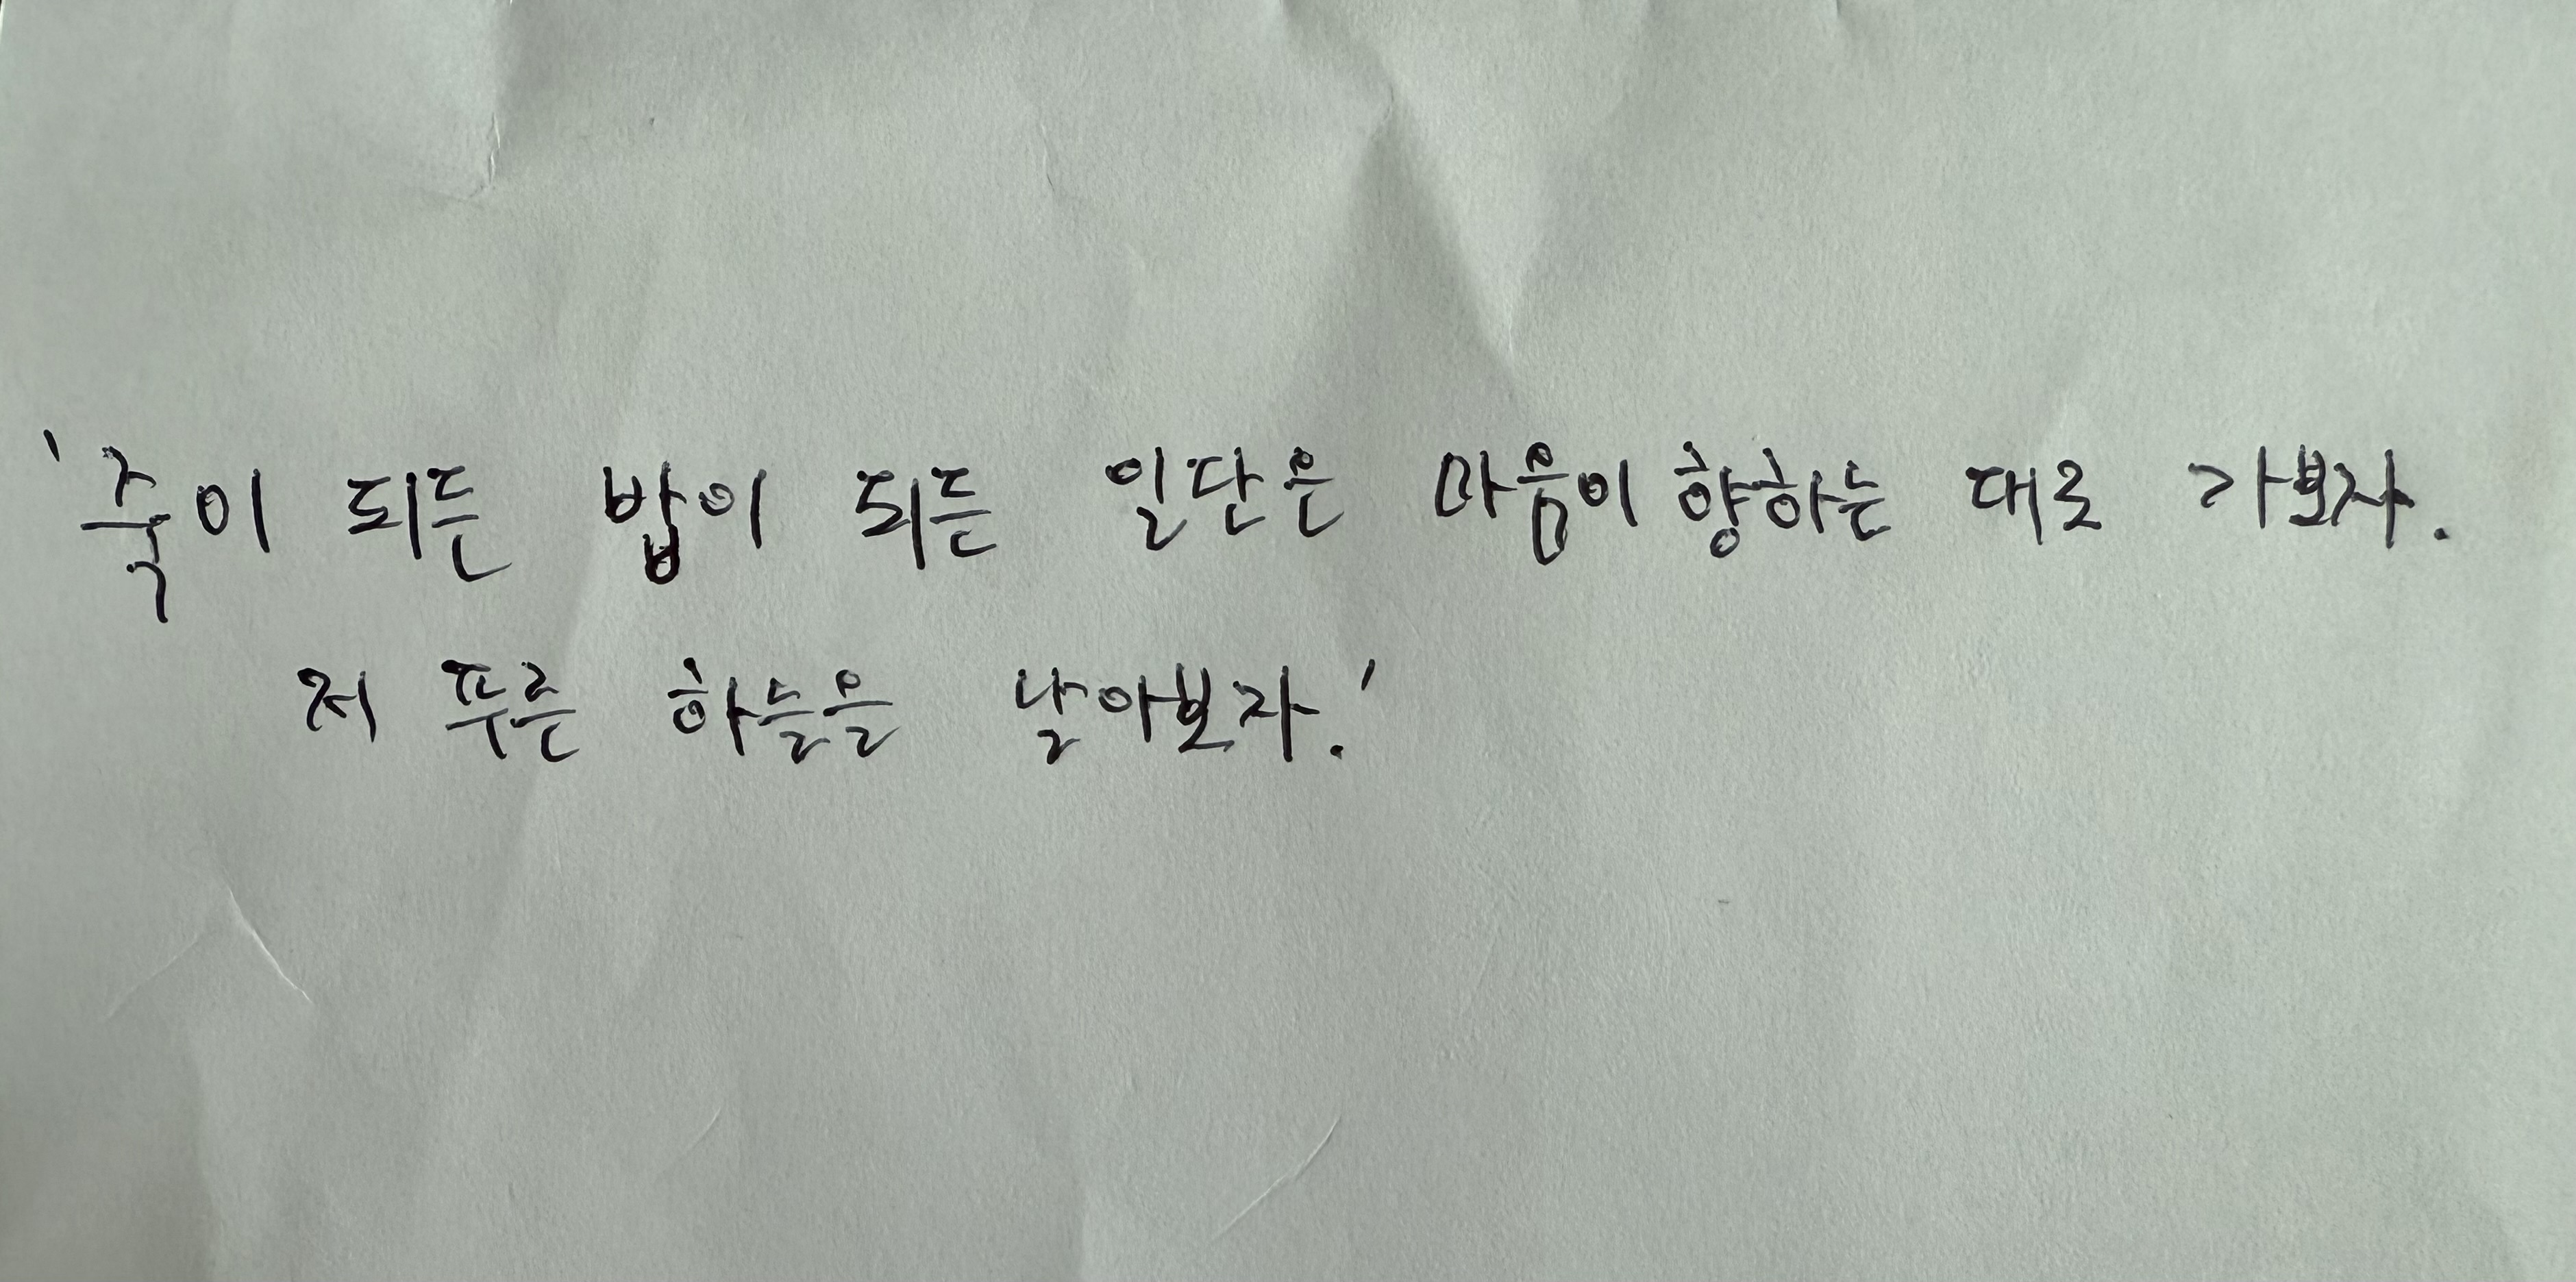 '죽이 되든 밥이 되든 일단은 마음이 향하는 대로 가보자.
저 푸른 하늘을 날아보자.'